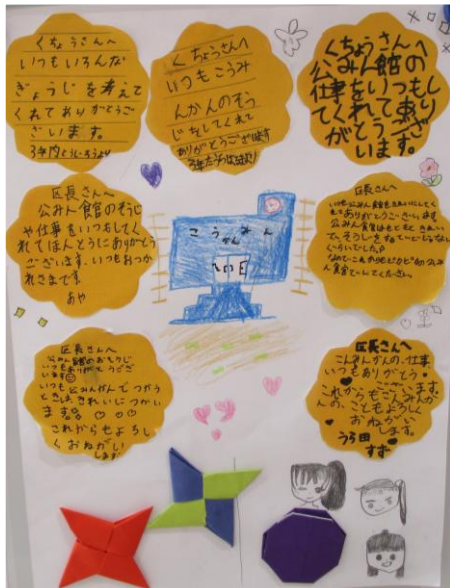 くちょうさんへ
いつもいろんな
ぎょうじを考えて
くれてありがとうご
ざいます。
くちょうさんへ
いつもこうみ
んかんのそう
じをしてくれて
ありがとうございます
くちょうさんへ
公みん館の
仕事をいつもし
てくれてあり
がとうござい
ます。
区長さんへ
公みん館のそうじ
や仕事をいつもしてく
れてほんとうにありがとう
ございます。いつもおつか
れさまです!
あや
こうみん
かん
区長さんへ
いつも公みん館をきれいにしてく
れてありがとうございます
公みん館はもともときれい
で、そうじをする
ぐらいでした
区長さんへ
公みん館のおそうじ
いつもありがとうござ
います
いつも公みんかんでつかう
ときは、きれいにつかい
ます。
これからもよろし
くおねがい
します
区長さんへ
こうみんかんの、仕事
いつもありがとう
ございます。
これからもこうみんか
んの、こともよろしく
おねがい
します。
うら田
すず